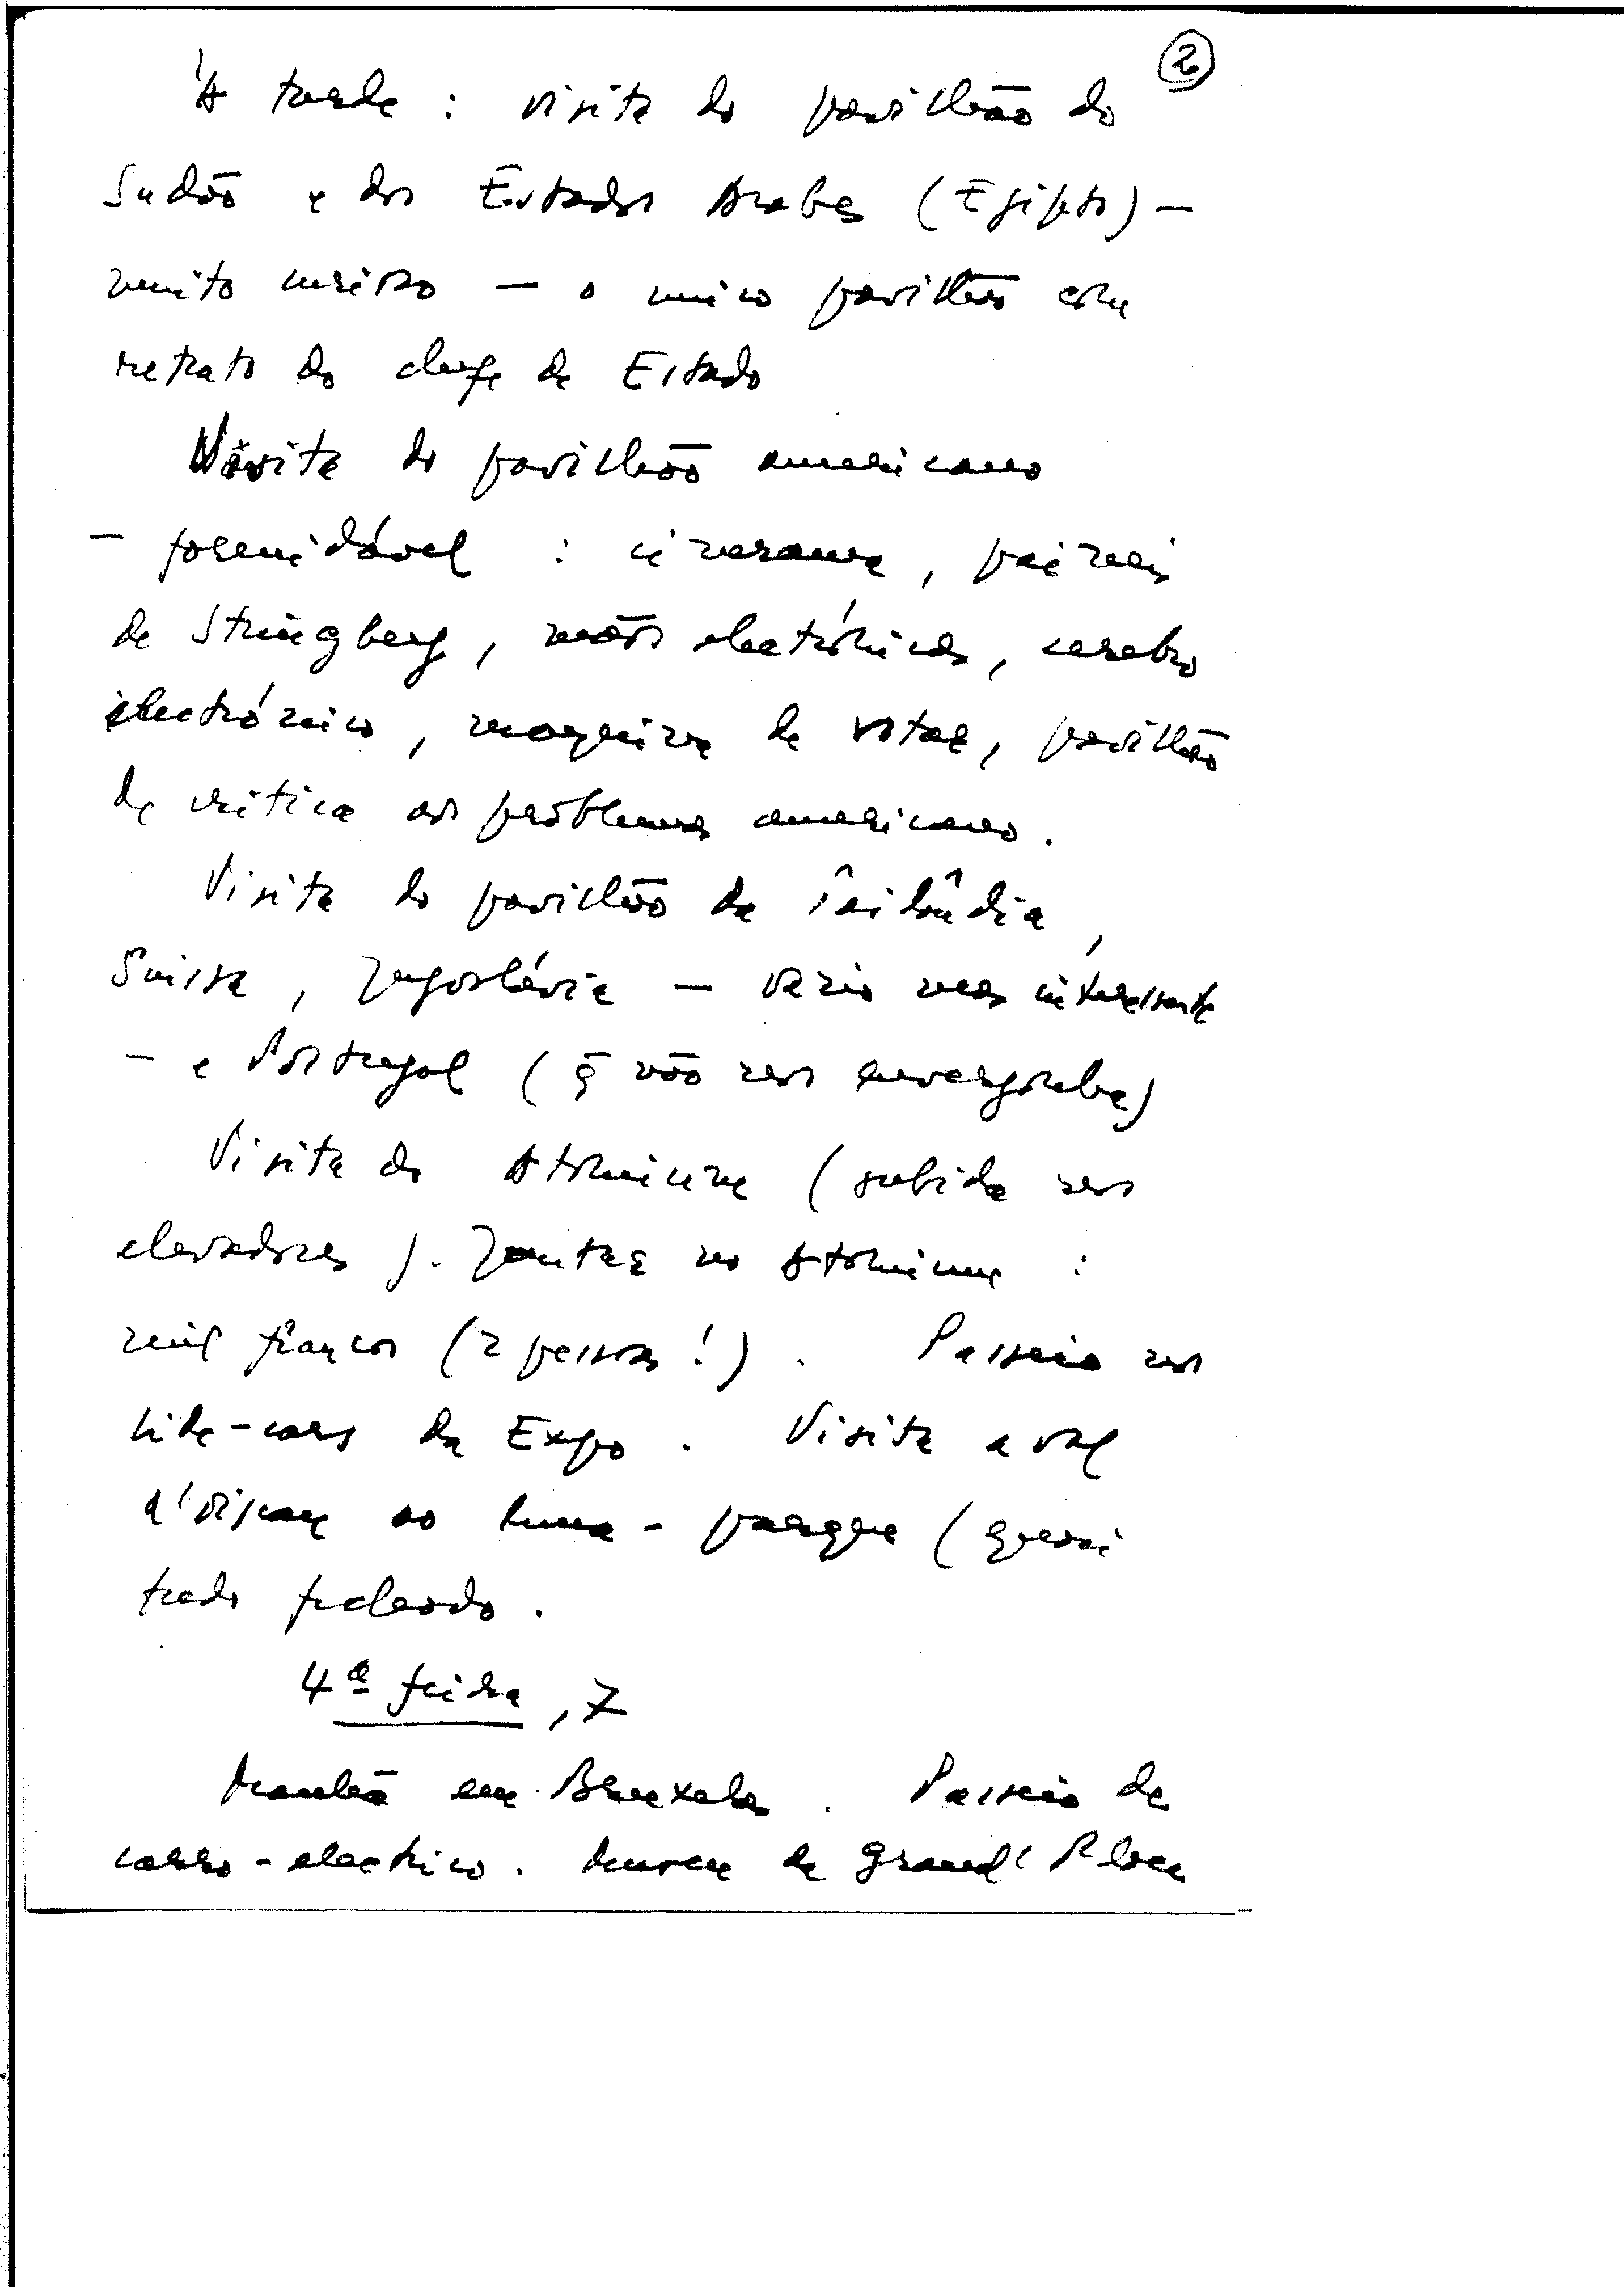 2
À tarde : visita do pavilhão do
Sudão e dos Estados Arabes (Egipto) —
muito curioso — o unico pavilhão com
retrato do chefe de Estado
Visita do pavilhão americano
— formidável : cinerama, paineis
de Steinberg, mãos electrónicas, cerebro
electrónico, maquina de votar, pavilhão
de critica aos problemas americanos.
Visita do pavilhão da Tailândia,
Suissa, Jugoslávia — vazio mas interessante
— e Portugal (q̃ não nos envergonha)
Visita do Atomium (subida nos
elevadores). Jantar no Atomium :
mil francos (2 pessoas!). Passeio nos
side-cars da Expo. Visita a vol
d'oiseau ao luna-parque (quasi
tudo fechado.
4ª feira, 7
Manhã em Bruxelas. Passeio de
carro-electrico. Museu da Grand' Place